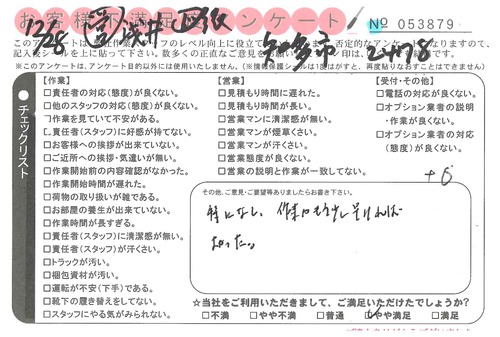 お客様満足度アンケート！
№ 053879
このアンケートは
※このアンケートは、アンケート目的以外には使用いたしません。(※情報保護シールは1度はがすと、再度貼りなおすことはできません。)
チェックリスト
【作業】
□責任者の対応(態度)が良くない。
□他のスタッフの対応(態度)が良くない。
作業を見ていて不安がある。
責任者(スタッフ)に好感が持てない。
□お客様への挨拶が出来ていない。
□ご近所への挨拶・気遣いが無い。
□作業開始前の内容確認がなかった。
□作業開始時間が遅れた。
□荷物の取り扱いが雑である。
□お部屋の養生が出来ていない。
□作業時間が長すぎる。
□責任者(スタッフ)に清潔感が無い。
□責任者(スタッフ)が汗くさい。
□トラックが汚い。
□梱包資材が汚い。
□運転が不安(下手)である。
□靴下の履き替えをしてない。
□スタッフにやる気がみられない。
【営業】
□見積り時間に遅れた。
□見積もり時間が長い。
□営業マンに清潔感が無い。
□営業マンが煙草くさい。
□営業マンが汗くさい。
□営業態度が良くない。
□営業の説明と作業が一致してない。
【受付・その他】
□電話の対応が良くない。
□オプション業者の説明
・作業が良くない。
□オプション業者の対応
(態度)が良くない。
+6
その他、ご意見・ご要望等ありましたらお書き下さい。
特になし、作業がもう少し早ければ
よかった。
☆当社をご利用いただきまして、ご満足いただけたでしょうか？
□不満 □やや不満 □普通 やや満足 □満足